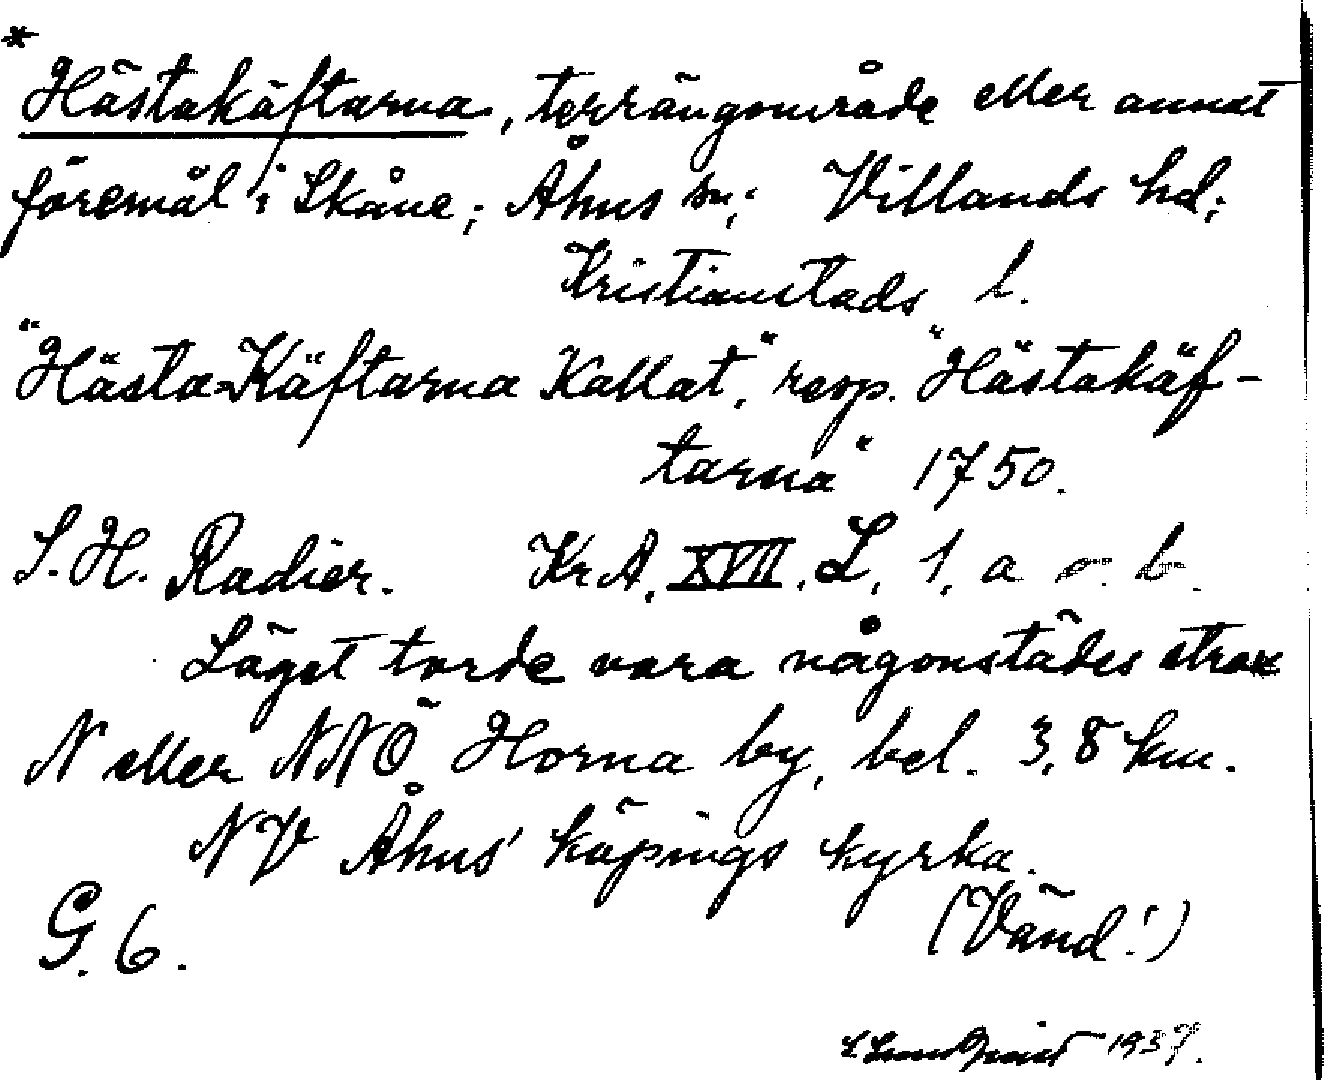 *
Hästakäftarna, terrängområde eller annat
föremål i Skåne; Åhus sn; Villands hd;
Kristianstads l.
"Hästa=Käftarna Kallat", resp. "Hästakäf-
tarna" 1750.
S. H. Radier. Kr. A. XVII. L. 1. a o. b.
Läget torde vara någonstädes strax
N eller NNÖ Horna by, bel. 3,8 km.
NV Åhus' köpings kyrka.
G. 6. (Vänd!)
1937.